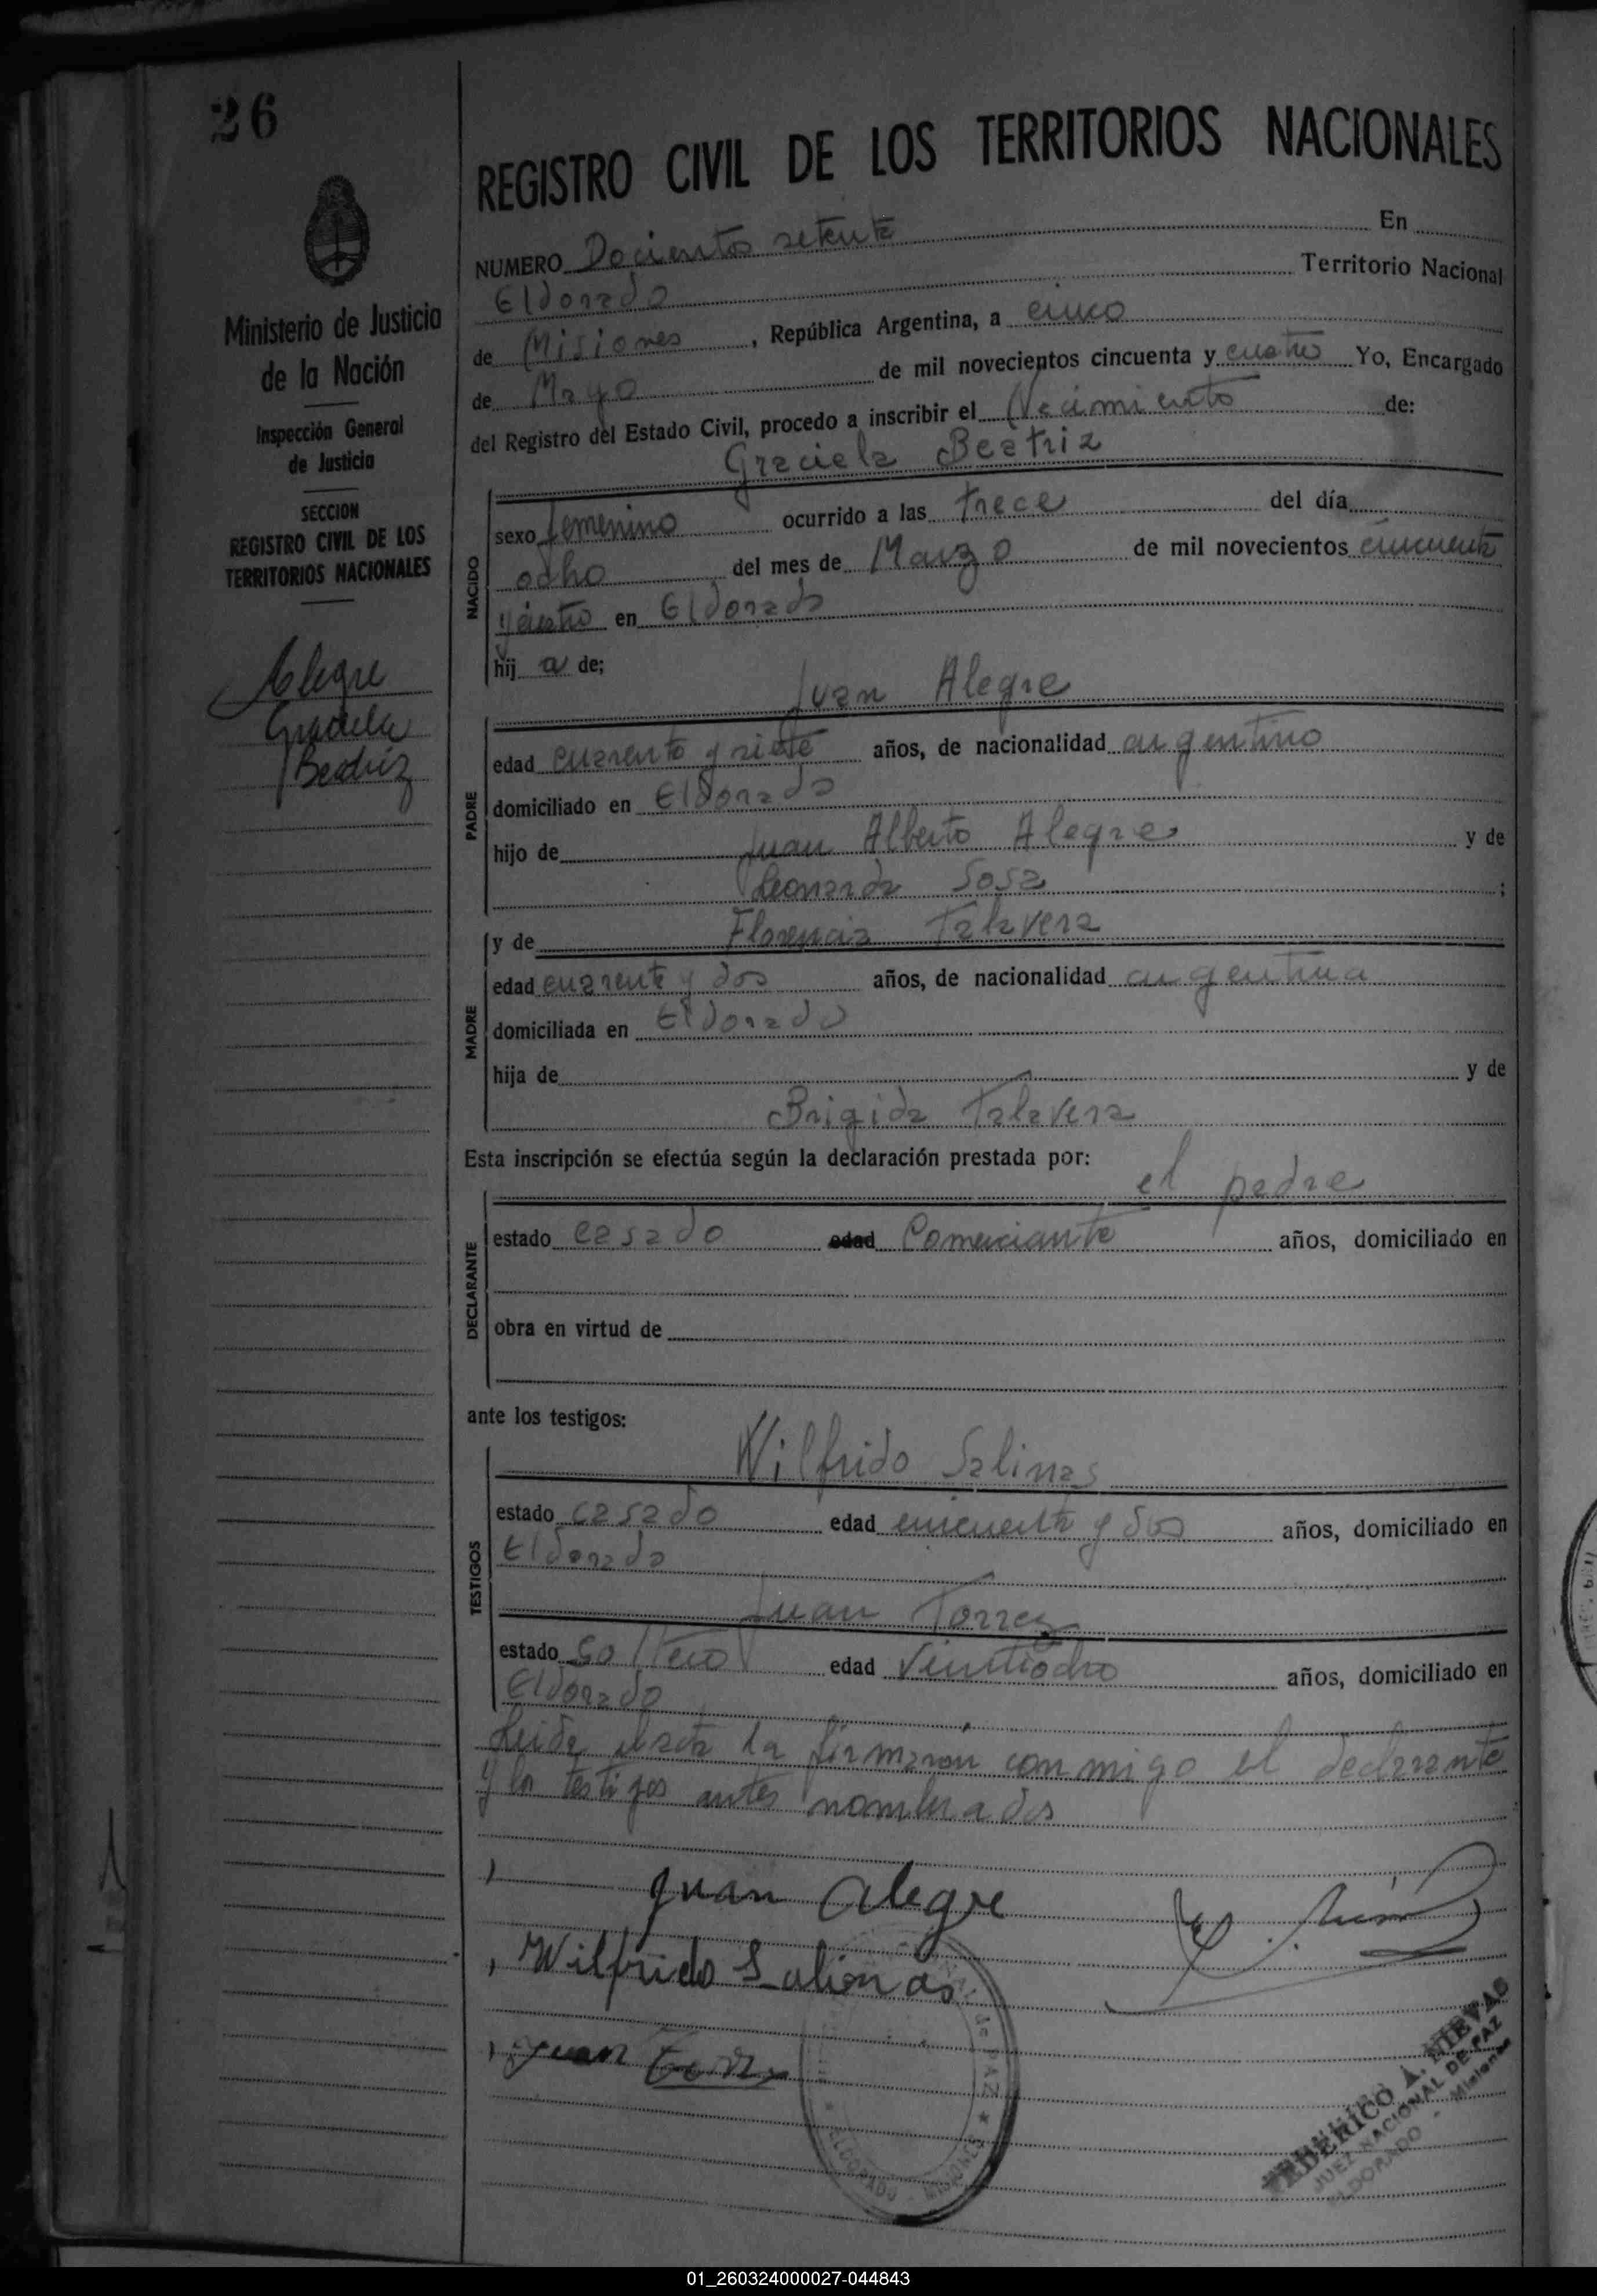 26
REGISTRO CIVIL DE LOS TERRITORIOS NACIONALES
Ministerio de Justicia
de la Nación
Inspección General
de Justicia
SECCION
REGISTRO CIVIL DE LOS
TERRITORIOS NACIONALES
Alegre
Graciela
Beatriz
NUMERO Docientos setenta En
Eldorado Territorio Nacional
de Misiones, República Argentina, a cinco
de Mayo de mil novecientos cincuenta y cuatro Yo, Encargado
del Registro del Estado Civil, procedo a inscribir el Nacimiento de:
Graciela Beatriz
NACIDO
sexo femenino ocurrido a las trece del día
ocho del mes de Marzo de mil novecientos cincuenta
y cuatro en Eldorado
hij a de;
Juan Alegre
PADRE
edad cuarenta y siete años, de nacionalidad argentino
domiciliado en Eldorado
hijo de Juan Alberto Alegre y de
Leonarda Sosa ;
MADRE
y de Florencia Talavera
edad cuarenta y dos años, de nacionalidad argentina
domiciliada en Eldorado
hija de y de
Brigida Talavera
Esta inscripción se efectúa según la declaración prestada por:
el padre
DECLARANTE
estado casado edad Comerciante años, domiciliado en
obra en virtud de
ante los testigos:
TESTIGOS
Wilfrido Salinas
estado casado edad cincuenta y dos años, domiciliado en
Eldorado
Juan Torrez
estado soltero edad Veintiocho años, domiciliado en
Eldorado
Leida el acta la firmaron conmigo el declarante
y los testigos antes nombrados
Juan Alegre
Wilfrido Salinas
Juan Torres
PAZ
ELDORADO - MISIONES
FEDERICO A. NIEVAS
JUEZ NACIONAL DE PAZ
ELDORADO - Misiones
01_260324000027-044843